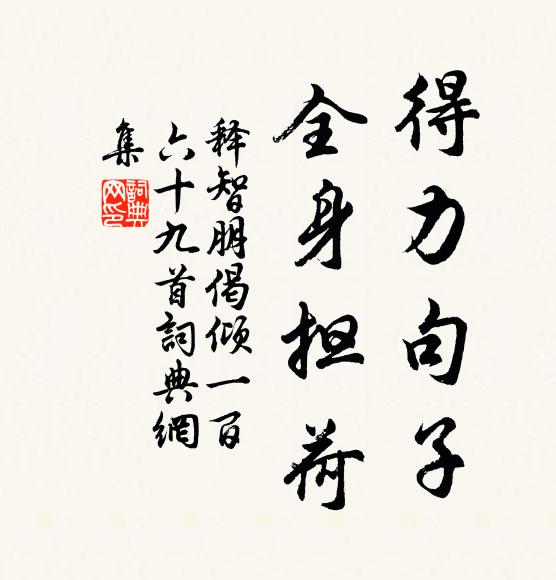 得力句子
全身担荷
释智朋偈倾一百
六十九首詞典網
集
詞典
网印